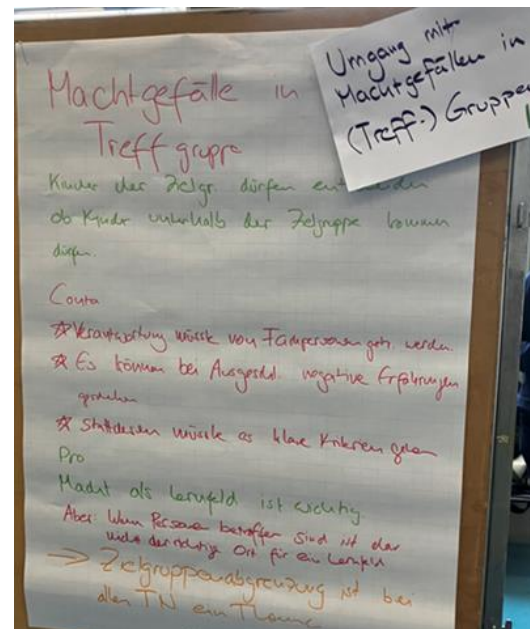 Umgang mit
Machtgefällen in
(Treff-) Gruppen
Machtgefälle in
Treffgruppe
Kinder der Zielgr. dürfen entscheiden
ob Kinder unterhalb der Zielgruppe kommen
dürfen.
Contra
Verantwortung müsste von Fachpersonen getr. werden.
Es können bei Ausgeschl. negative Erfahrungen
geschehen
Stattdessen müsste es klare Kriterien geben
Pro
Macht als Lernfeld ist wichtig.
Aber: Wenn Personen betroffen sind ist das
nicht der richtige Ort für ein Lernfeld
→ Zielgruppenabgrenzung ist bei
allen TN ein Thema